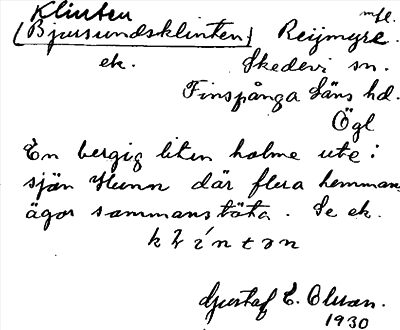 Klinten
(Bjursundsklinten) Reijmyre mfl.
ek. Skedevi sn.
Finspånga läns hd.
Ögl
En bergig liten holme ute i
sjön Hunn där flera hemmans
ägor sammanstöta. Se ek.
Gustaf E. Olsson.
1930